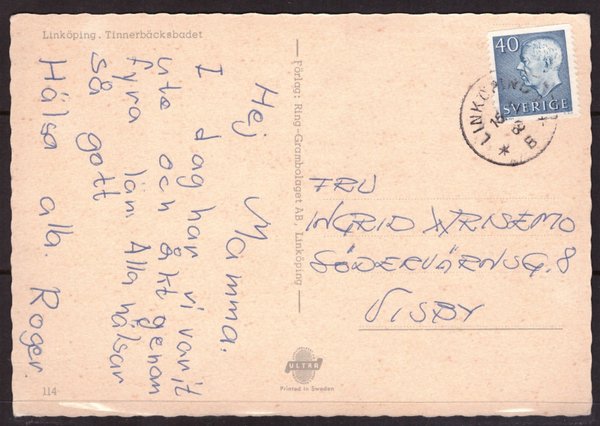 Linköping. Tinnerbäcksbadet
Hej Mamma.
I dag har vi varit
ute och åkt genom
fyra län Alla hälsar
så gott
Hälsa alla. Roger.
114
Förlag: Ring-Grambolaget AB, Linköping
ULTAR
Printed in Sweden
40
SVERIGE
LINKÖPING
FRU
INGRID WRISEMO
SÖDERVÄRNSG. 8
VISBY